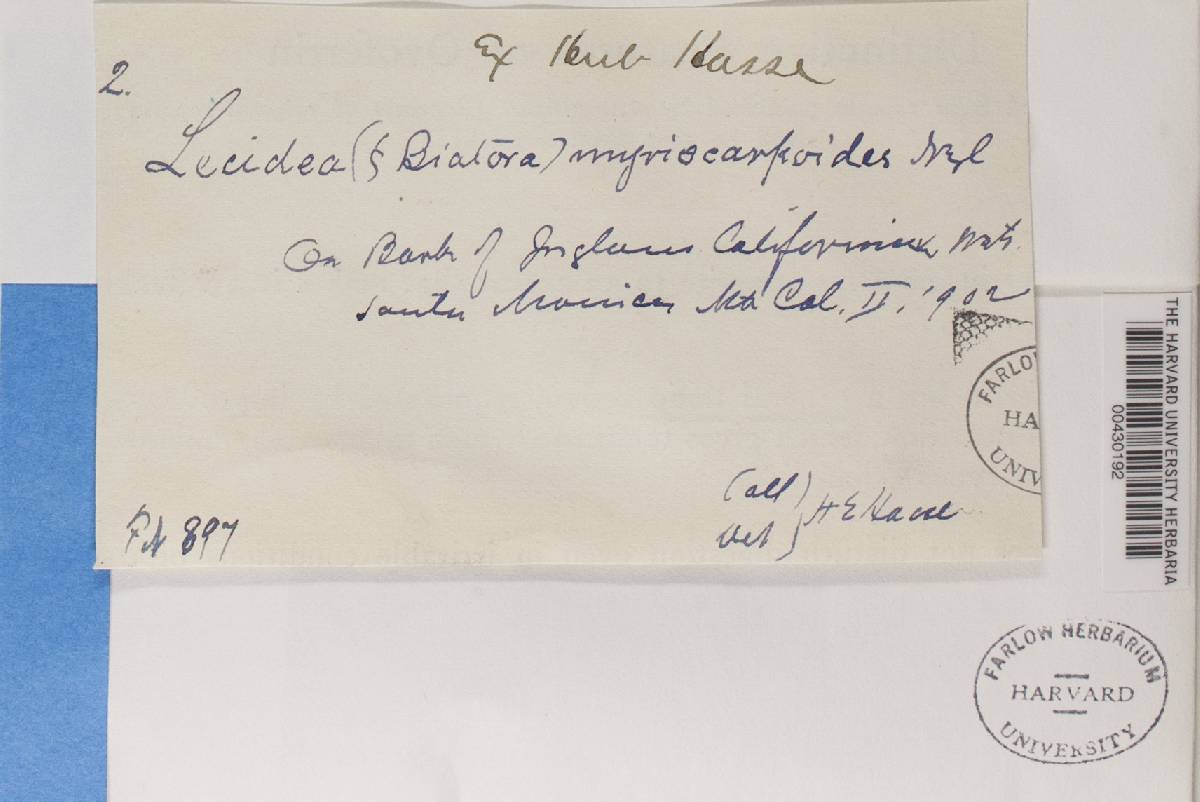 Ex Herb Hasse
2.
Lecidea (§ Biatora) myriocarpoides Nyl
On Bark of Juglans Californica, Wats.
Santa Monica Mts Cal. II. '902
FARLO
HA
UNIV
Coll
Det } H E Hasse
897
THE HARVARD UNIVERSITY HERBARIA
00430192
FARLOW HERBARIUM
HARVARD
UNIVERSITY